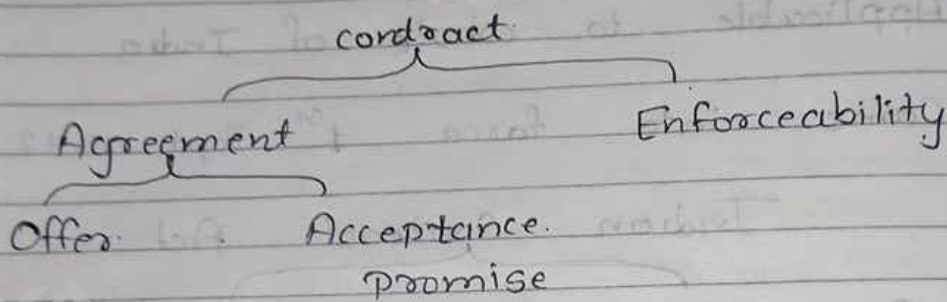 contract.
Agreement Enforceability
Offer. Acceptance.
promise